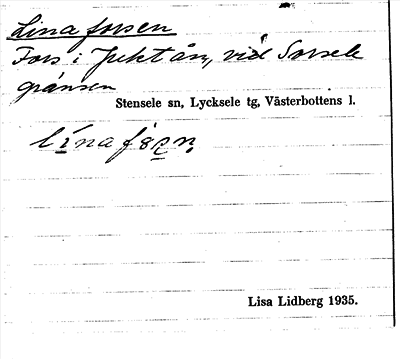 Linaforsen
Fors i Juktån, vid Sorsele
gränsen
Stensele sn, Lycksele tg, Västerbottens l.
Lisa Lidberg 1935.